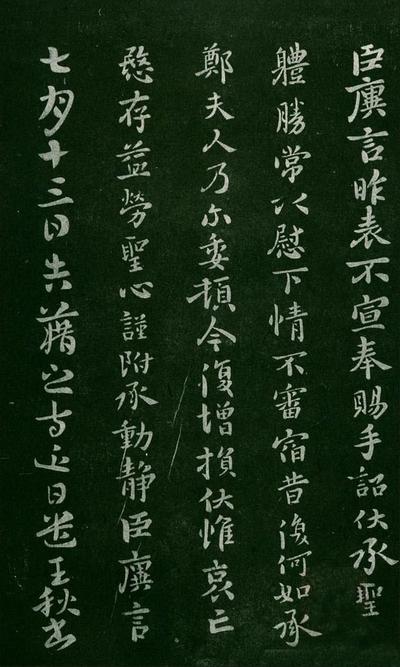 臣廙言昨表不宣奉賜手詔伏承聖
體勝常以慰下情不審宿昔復何如承
鄭夫人乃尒委頓今復增損伏惟哀亡
愍存益勞聖心謹附承動靜臣廙言
七月十三日告藉之等近日遣王秋書